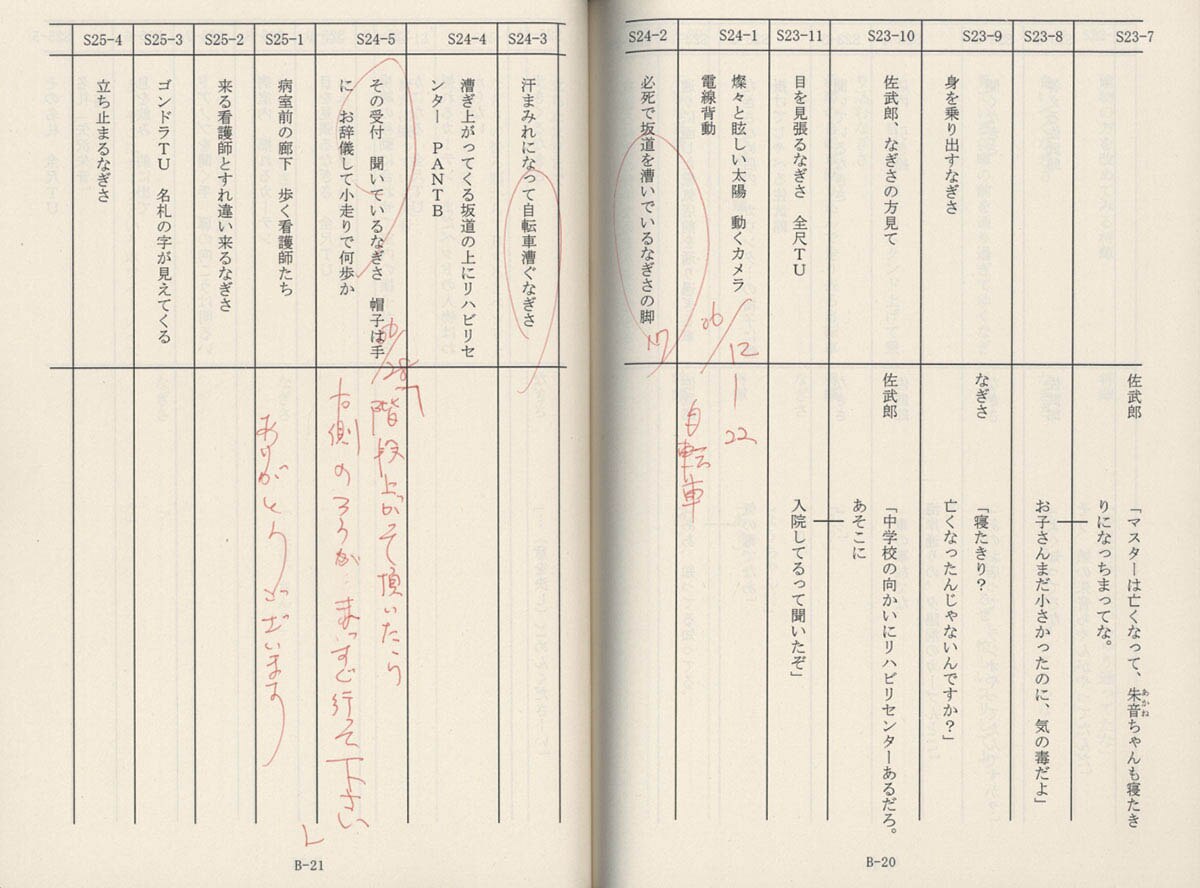 S23-7
佐武郎
「マスターは亡くなって、朱音ちゃんも寝たき
あかね
りになっちまってな。
S23-8
お子さんまだ小さかったのに、気の毒だよ」
S23-9
身を乗り出すなぎさ
なぎさ
「寝たきり?
亡くなったんじゃないんですか?」
S23-10
佐武郎、なぎさの方見て
佐武郎
「中学校の向かいにリハビリセンターあるだろ。
あそこに
S23-11
目を見張るなぎさ 全尺TU
入院してるって聞いたぞ」
S24-1
燦々と眩しい太陽 動くカメラ
電線背動
06/12 1 22
自転車
S24-2
必死で坂道を漕いでいるなぎさの脚
B-20
S24-3
汗まみれになって自転車漕ぐなぎさ
S24-4
漕ぎ上がってくる坂道の上にリハビリセ
ンター PANTB
S24-5
その受付 聞いているなぎさ 帽子は手
に お辞儀して小走りで何歩か
06/28
「階段上がって頂いたら
右側のろうか…まっすぐ行って下さい」
ありがとうございます
S25-1
病室前の廊下 歩く看護師たち
S25-2
来る看護師とすれ違い来るなぎさ
S25-3
ゴンドラTU 名札の字が見えてくる
S25-4
立ち止まるなぎさ
B-21